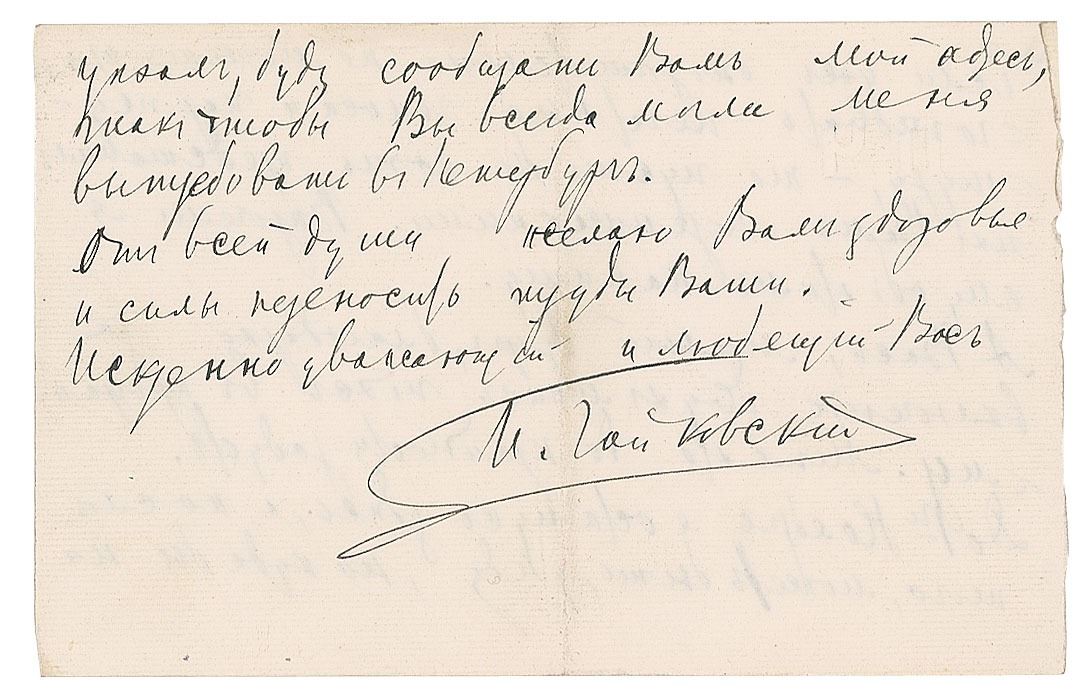 буду сообщать Вамъ мой адресъ,
такъ чтобы Вы всегда могли меня
вытребовать въ Петербургъ.
Отъ всей души желаю Вамъ здоровья
и силы переносить труды Ваши.
Искренно уважающій и любящій Васъ
М. Чайковскій